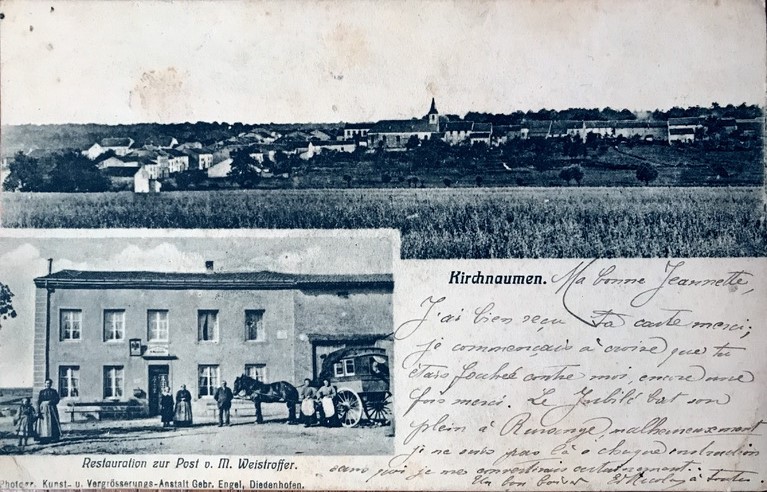 Kirchnaumen. Ma bonne Jeannette,
J'ai bien reçu ta carte merci;
je commençais à croire que tu
étais fachée contre moi, encore une
fois merci. Le Jubilé bat son
plein à malheureusement
je ne suis pas là à chaque instruction
sans quoi je me convertirais certainement.
Un bon baiser à toutes
Restauration zur Post v. M. Weistroffer.
Photogr. Kunst- u. Vergrösserungs-Anstalt Gebr. Engel, Diedenhofen.